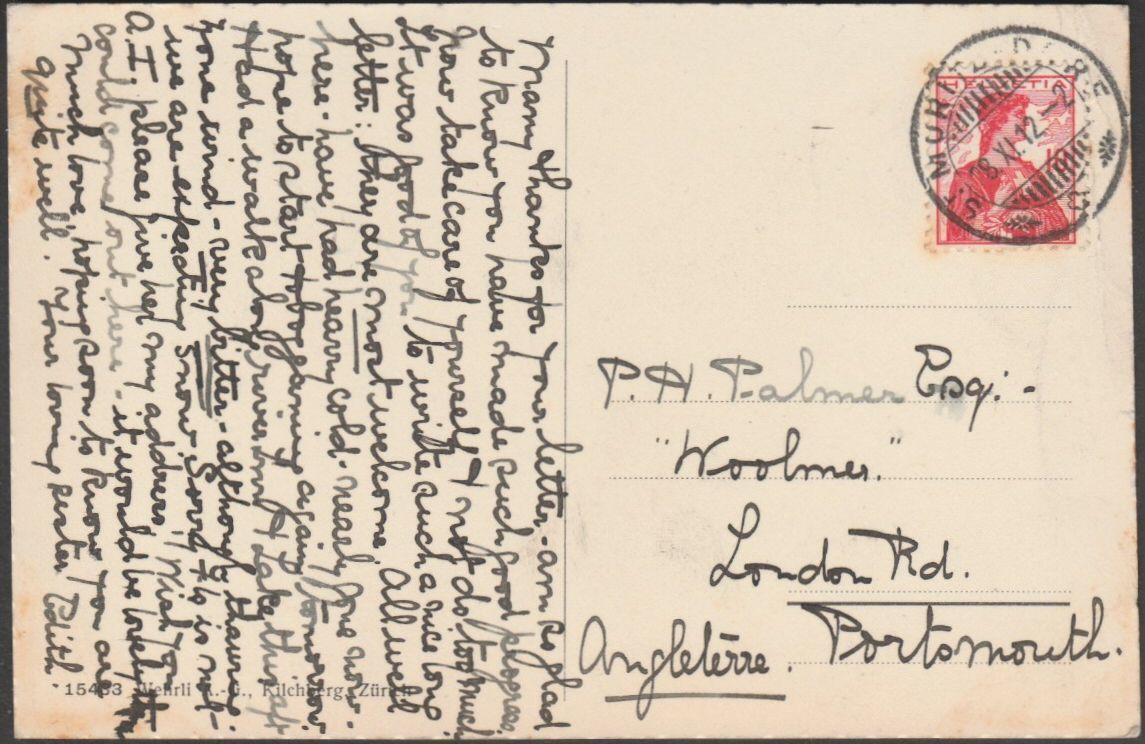 Many thanks for your letter. am so glad
to know you have made such good progress.
now take care of yourself & not do too much
It was good of you to write such a nice long
letter: they are most welcome. All well
here. have had heavy cold. nearly gone now.
hope to start tobogganing again tomorrow
Had a walk along river Inn & Lake this aft
wind - very bitter - although thawing.
we are expecting snow. Sorry is not
A.I. please give her my address, Wish you
could come out here - it would be lovely
Much love, hoping soon to know you are
quite well. Your loving sister Edith
HELVETIA
10
ST MORITZ-DORF
28.XI.12.-12
P. H. Palmer Esq:-
"Woolmer."
London Rd.
Portsmouth.
Angletèrre.
15433 Wehrli A.-G., Kilchberg, Zürich